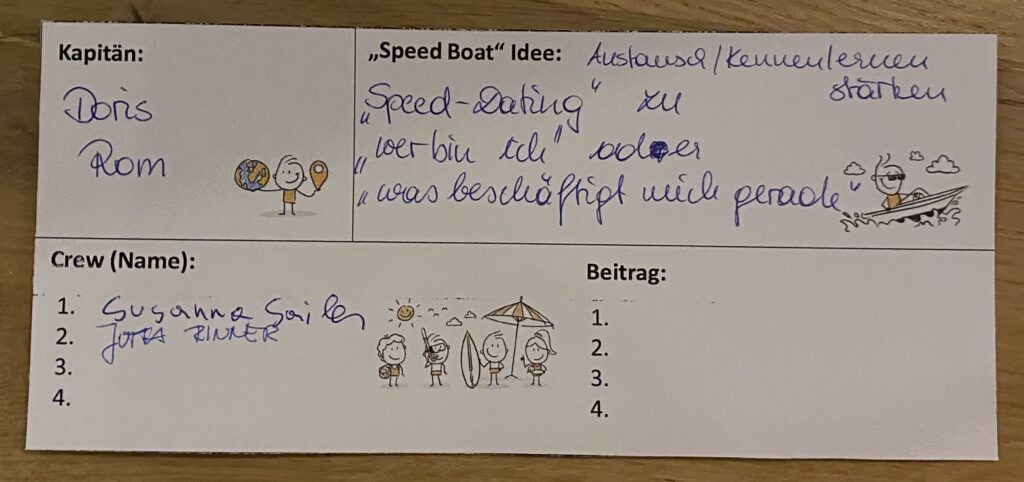 Kapitän:
Doris
Rom
„Speed Boat“ Idee: Austausch/Kennenlernen
stärken
„Speed-Dating“ zu
„wer bin ich“ oder
„was beschäftigt mich gerade“
Crew (Name):
1. Susanna Sailer
2. JUTTA RINNER
3.
4.
Beitrag:
1.
2.
3.
4.